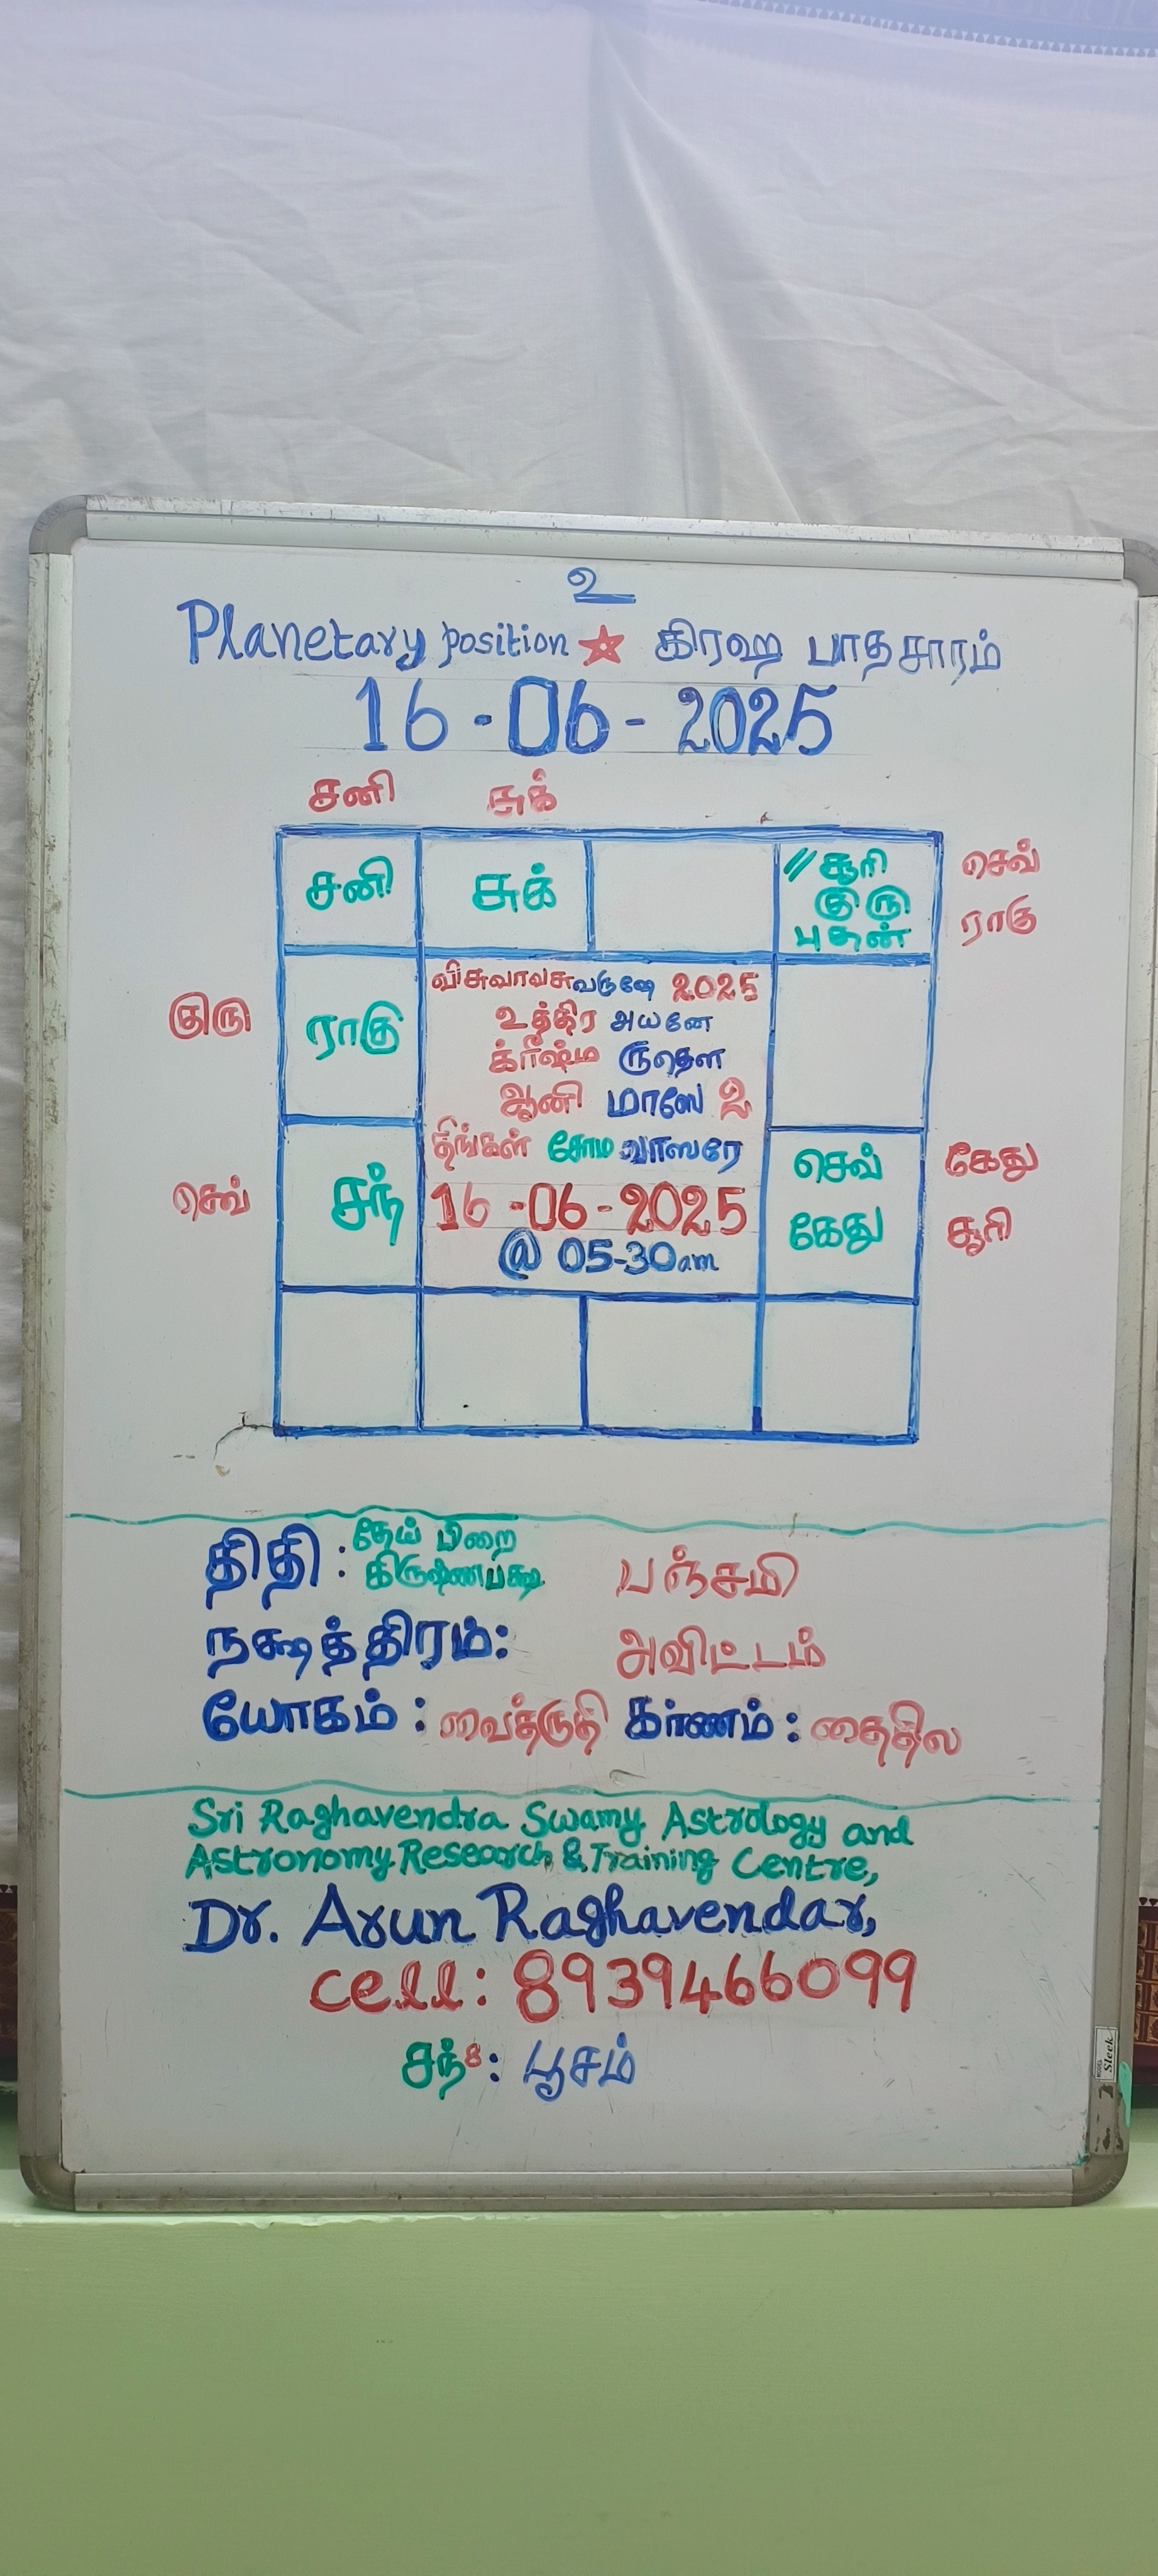 உ
Planetary position ☆ கிரஹ பாதசாரம்
16-06-2025
சனி சுக்
சனி சுக் // சூரி குரு புதன்
செவ் ராகு
குரு
ராகு
விசுவாவசுவருஷே 2025
உத்திர அயனே
க்ரீஷ்ம ருதௌ
ஆனி மாஸே 2
திங்கள் சோம வாஸரே
16-06-2025
@ 05-30am
செவ்
சந்
செவ் கேது
கேது சூரி
திதி : தேய் பிறை கிருஷ்ணபக்ஷ பஞ்சமி
நக்ஷத்திரம்: அவிட்டம்
யோகம் : வைத்ருதி கர்ணம் : தைதில
Sri Raghavendra Swamy Astrology and
Astronomy Research & Training Centre,
Dr. Arun Raghavendar,
cell: 8939466099
சந்8: பூசம்
Sleek